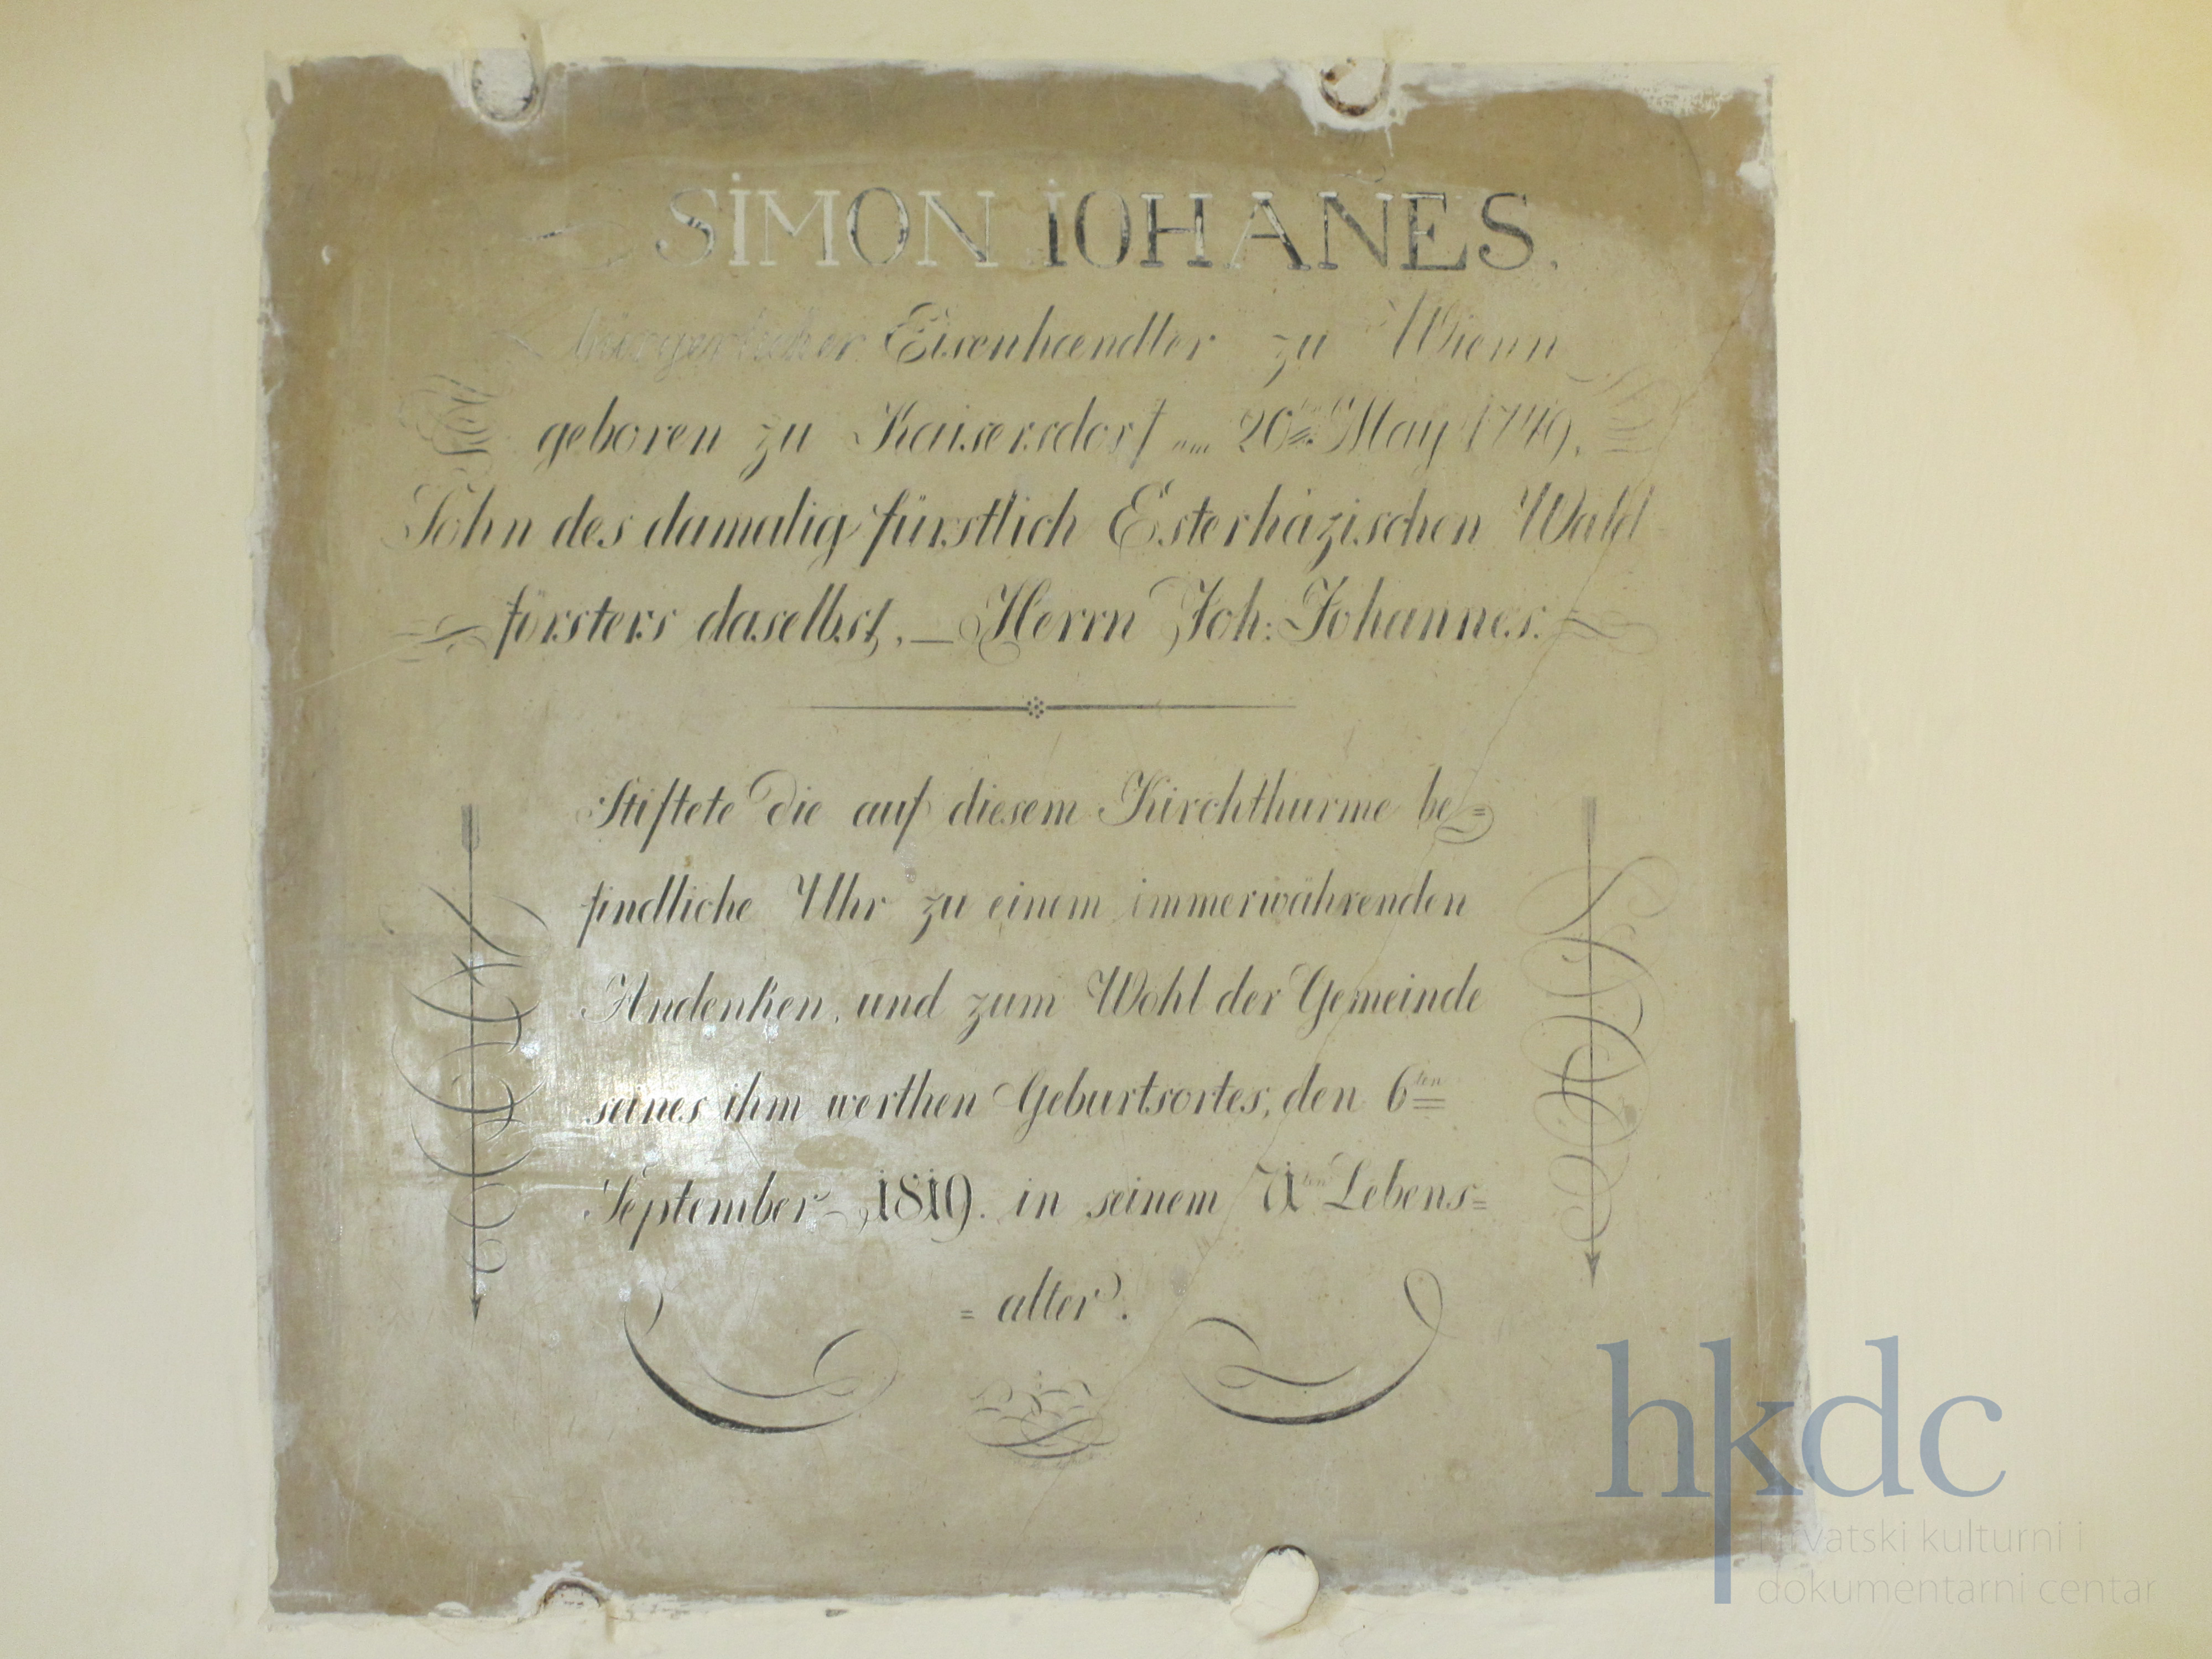 SIMON IOHAN̄ES.
bürgerlicher Eisenhaendler zu Wienn
geboren zu Kaisersdorf am 20ten May 1749.
Sohn des damalig fürstlich Esterházischen Wald
försters daselbst, — Herrn Joh: Johannes.
Stiftete die auf diesem Kirchthurme be=
findliche Uhr zu einem immerwährenden
Andenken, und zum Wohl der Gemeinde
seines ihm werthen Geburtsortes, den 6ten
September 1819. in seinem 71ten Lebens=
= alter.
hkdc
hrvatski kulturni i
dokumentarni centar